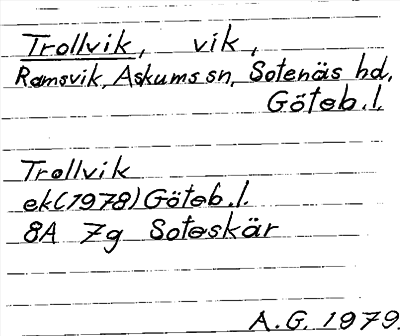 Trollvik, vik,
Ramsvik, Askums sn, Sotenäs hd,
Göteb.l.
Trollvik
ek(1978) Göteb.l.
8A 7g Soteskär
A.G. 1979.